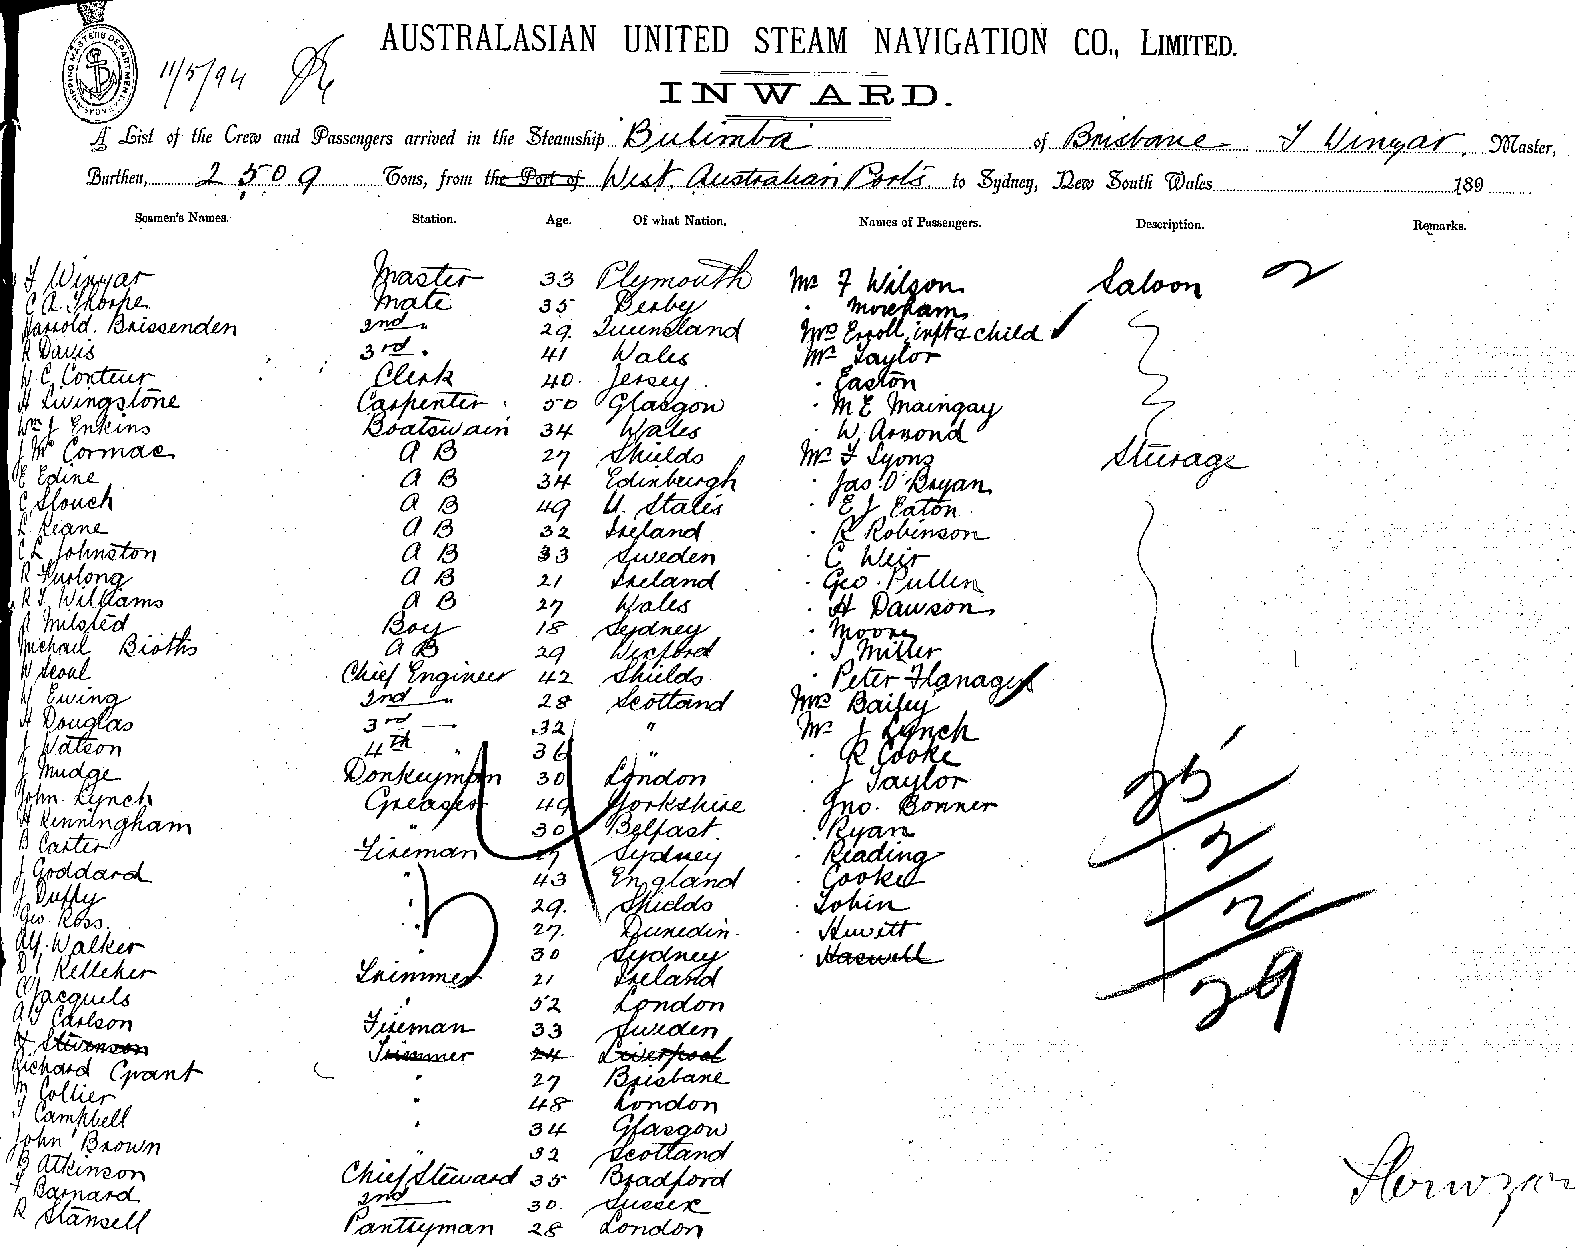 11/5/94
AUSTRALASIAN UNITED STEAM NAVIGATION CO., LIMITED.
INWARD.
A List of the Crew and Passengers arrived in the Steamship Bulimba of Brisbane F Winyar, Master,
Burthen, 2509 Tons, from the Port of West Australian Ports to Sydney, New South Wales 189
Seamen's Names. Station. Age. Of what Nation. Names of Passengers. Description. Remarks.
F Winyar Master 33 Plymouth Mr F Wilson Saloon 2
C A Thorpe Mate 35 Derby " Moreham
Harrold Brissenden 2nd " 29 Queensland Mrs Erroll, inft & child
R Davis 3rd " 41 Wales Mr Taylor
W C Conteur Clerk 40 Jersey " Easton
H Livingstone Carpenter 50 Glasgow " M E Maingay
Wm J Enkins Boatswain 34 Wales " W Armond
J McCormac A B 27 Shields Mr F Lyons Sturage
E Edine A B 34 Edinburgh " Jas O'Bryan
C Slouch A B 49 U. States " E J Eaton
L Keane A B 32 Ireland " R Robinson
C L Johnston A B 33 Sweden " C Weir
R Furlong A B 21 Ireland " Geo Pullen
R J Williams A B 27 Wales " H Dawson
A Milsted Boy 18 Sydney " Moore
Michael Bioths A B 29 Wexford " J Miller
W Seoul Chief Engineer 42 Shields " Peter Flanagen
W Ewing 2nd " 28 Scotland Mrs Bailey
A Douglas 3rd — 32 " Mr J Lynch
J Watson 4th " 36 " " R Cooke
J Mudge Donkeyman 30 London " J Taylor 25
John Lynch Greaser 49 Yorkshire " Jno. Bonner
H Kenningham " 30 Belfast " Ryan 2
B Carter Fireman 27 Sydney " Reading
J Goddard " 43 England " Cooke
J Duffy " 29 Shields " Tobin 2
Geo Ross " 27 Dunedin " Hewitt
Alf. Walker " 30 Sydney " Haswell
D J Kelleher Trimmer 21 Ireland 29
C Jacquels 52 London
A J Carlson Fireman 33 Sweden
H Stevenson Trimmer 24 Liverpool
Richard Grant " 27 Brisbane
M Collier " 48 London
J Campbell " 34 Glasgow
John Brown 32 Scotland
B Atkinson Chief Steward 35 Bradford
F Barnard 2nd — 30 Sussex
R Stansell Pantryman 28 London